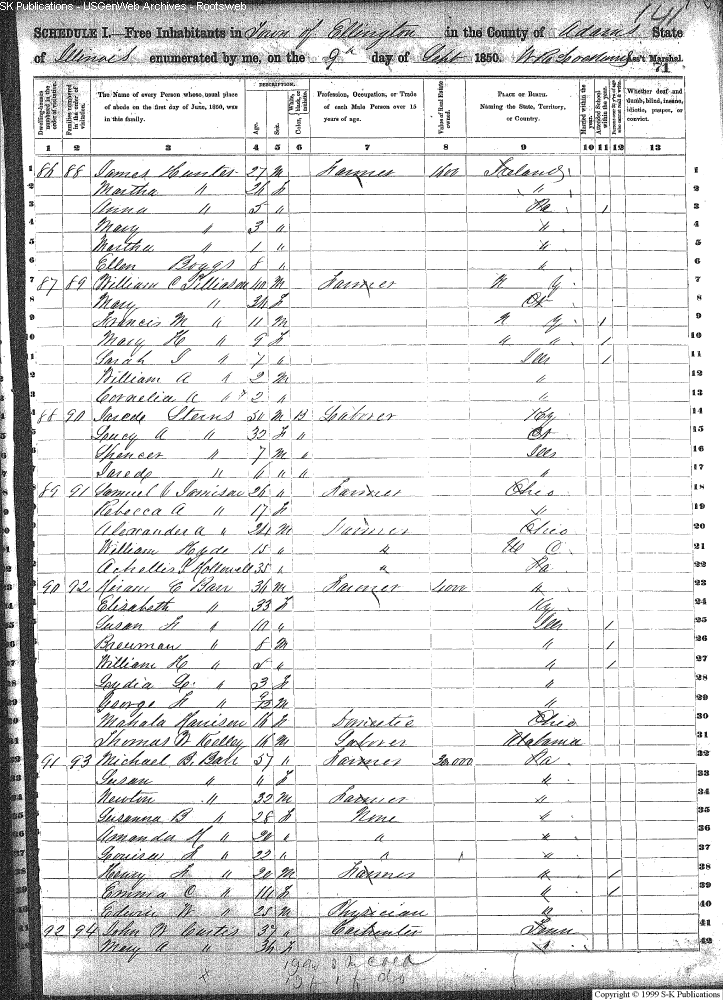 SK Publications - USGenWeb Archives - Rootsweb
141
SCHEDULE I.—Free Inhabitants in Town of Ellington in the County of Adams State
of Illinois enumerated by me, on the 9th day of Sept 1850. Ass't Marshal.
71
Dwelling-houses numbered in the order of visitation.
Families numbered in the order of visitation.
The Name of every Person whose usual place of abode on the first day of June, 1850, was in this family.
DESCRIPTION.
Age.
Sex.
White, black, or mulatto.
Profession, Occupation, or Trade of each Male Person over 15 years of age.
Value of Real Estate owned.
PLACE OF BIRTH. Naming the State, Territory, or Country.
Married within the year.
Attended School within the year.
Whether deaf and dumb, blind, insane, idiotic, pauper, or convict.
1 2 3 4 5 6 7 8 9 10 11 12 13
1 86 88 James Hunter 27 M Farmer 1600 Ireland 1
2 Martha " 26 F " 2
3 Anna " 5 " Pa 1 3
4 Mary " 3 " " 4
5 Martha " 1 " " 5
6 Ellen Boggs 8 " " 6
7 87 89 William C Tilliason 40 M Farmer N Y 7
8 Mary " 34 F Ct 8
9 Francis M " 11 M N Y 1 9
10 Mary H " 9 F " " 1 10
11 Sarah J " 7 " Ills 1 11
12 William A " 2 M " 12
13 Cornelia A " 2 " " 13
14 88 90 Sterns 50 M B Laborer Ky 14
15 Lucy A " 32 F " Ct 15
16 Spencer " 7 M " Ills 16
17 " " " " 17
18 89 91 Samuel Jamison 26 " Farmer Ohio 18
19 Rebecca A " 17 F " 19
20 Alexander A " 24 M Farmer Ohio 20
21 William Hyde 15 " " 21
22 35 " " Pa 22
23 90 92 Hiram C Barr 36 M Farmer 4000 " 23
24 Elizabeth " 33 F Ky 24
25 Susan F " 10 " Ills 1 25
26 Bowman " 8 M " 1 26
27 William H " 5 " " 1 27
28 Lydia " 3 F " 28
29 George F " M " 29
30 Mahala Harrison 16 F Domestic Ohio 30
31 Thomas W Kelley 16 M Laborer Alabama 31
32 91 93 Michael B. Barr 57 " Farmer 20,000 Pa 32
33 Susan " F " 33
34 Newton " 32 M Farmer " 34
35 Susanna B " 28 F None " 35
36 Amanda H " " " " 36
37 Louisa F " 22 " " " " 37
38 Henry F " 20 M Farmer " 1 38
39 Emma C " 14 F " 1 39
40 Edwin W " 25 M Physician " 40
41 92 94 John W Curtis 37 " Carpenter Tenn 41
42 Mary A " 36 F " 42
Copyright © 1999 S-K Publications